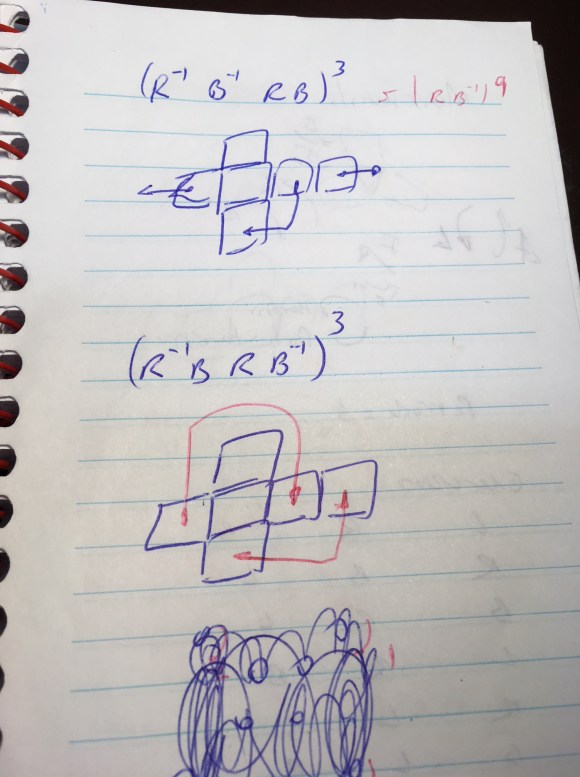 (R⁻¹ B⁻¹ R B)³ = (R B⁻¹)⁹
(R⁻¹ B R B⁻¹)³